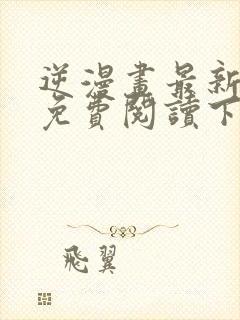 逆漫畫最新
免費閱讀下
飛翼